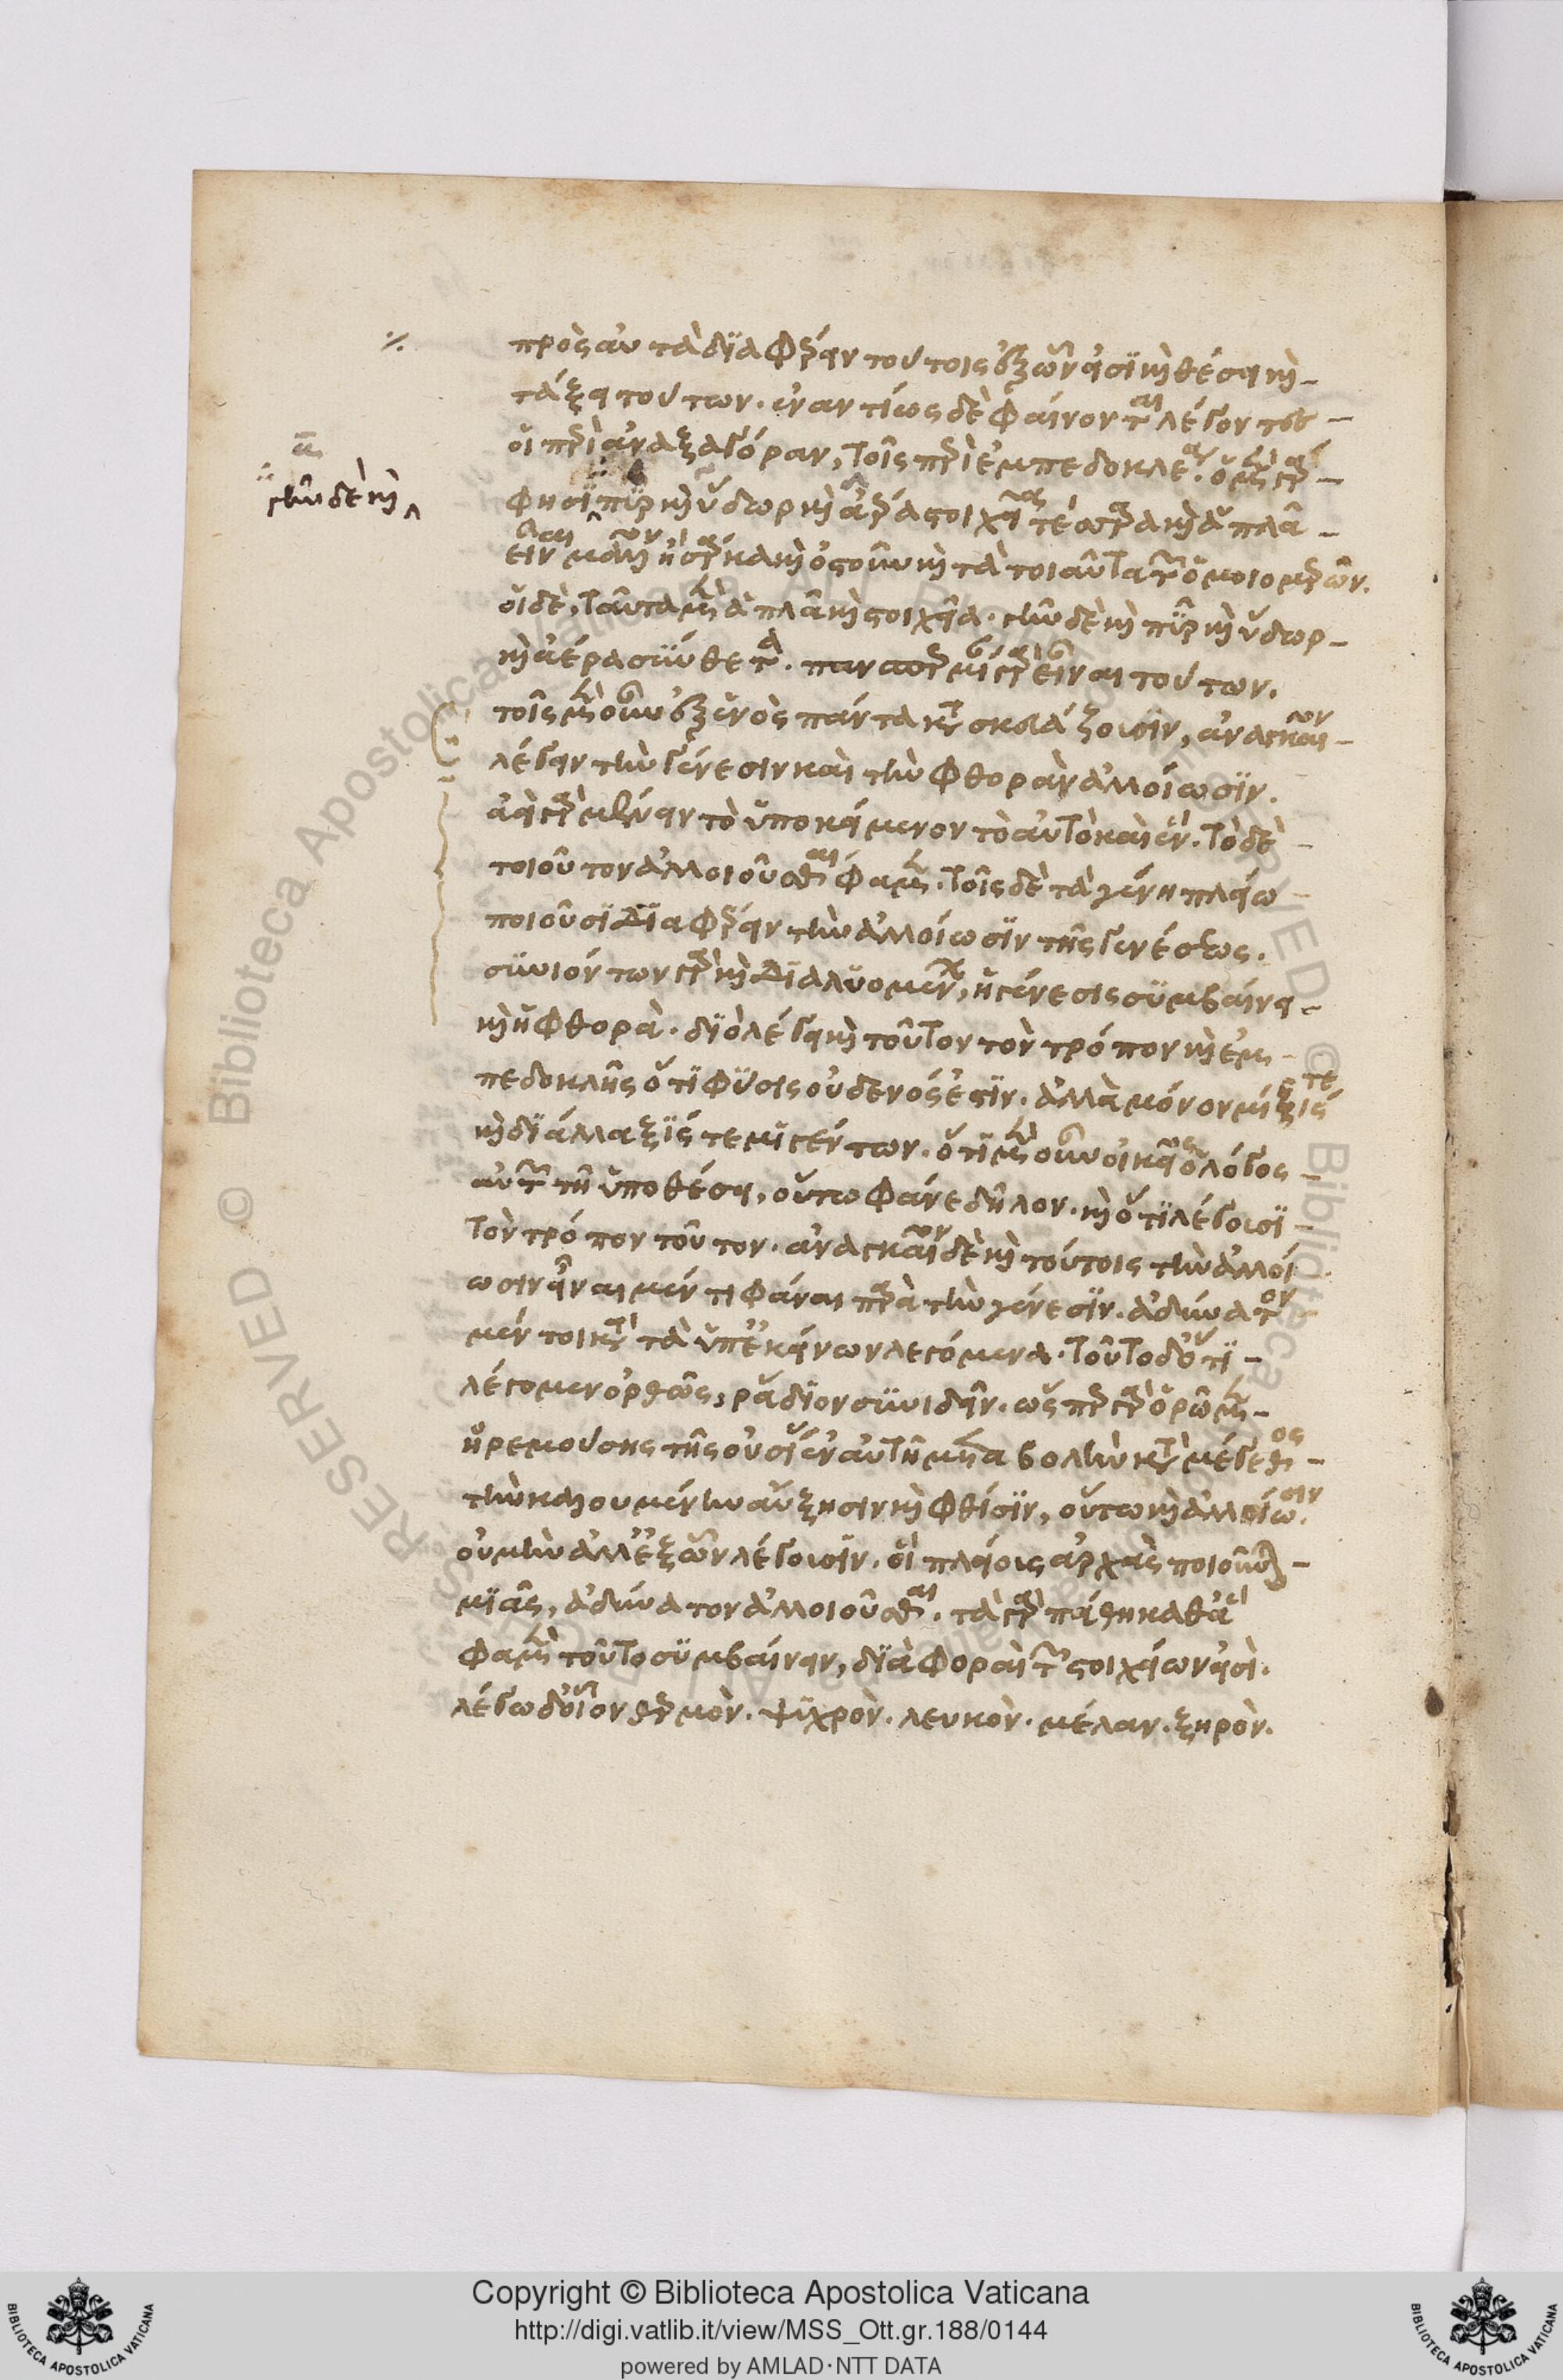 πρὸς αὐτὰ διαφέρειν τούτοις ἐξ ὧν εἰσὶ καὶ θέσει καὶ
τάξει τούτων. ἐναντίως δὲ φαίνονται λέγοντες
οἱ περὶ ἀναξαγόραν, τοῖς περὶ ἐμπεδοκλέα. ὁ μὲν γάρ
γῆν δὲ καὶ
φησι πῦρ καὶ ὕδωρ καὶ ἀέρα στοιχεῖα τέσσαρα καὶ ἁπλᾶ
εἶναι μᾶλλον ἢ σάρκα καὶ ὀστοῦν καὶ τὰ τοιαῦτα τῶν ὁμοιομερῶν.
οἱ δὲ, ταῦτα μὲν ἁπλᾶ καὶ στοιχεῖα. γῆν δὲ καὶ πῦρ καὶ ὕδωρ
καὶ ἀέρα σύνθετα. γὰρ εἶναι τούτων.
τοῖς μὲν οὖν ἐξ ἑνὸς πάντα κατασκευάζουσιν, ἀναγκαῖον
λέγειν τὴν γένεσιν καὶ τὴν φθορὰν ἀλλοίωσιν.
ἀεὶ γὰρ μένειν τὸ ὑποκείμενον τὸ αὐτὸ καὶ ἕν. τὸ δὲ
τοιοῦτον ἀλλοιοῦσθαι φαμέν. τοῖς δὲ τὰ γένη πλείω
ποιοῦσι διαφέρειν τὴν ἀλλοίωσιν τῆς γενέσεως.
συνιόντων γὰρ καὶ διαλυομένων, ἡ γένεσις συμβαίνει
καὶ ἡ φθορά. διὸ λέγει καὶ τοῦτον τὸν τρόπον καὶ ἐμ
πεδοκλῆς ὅτι φύσις οὐδενός ἐστιν. ἀλλὰ μόνον μίξίς τε
καὶ διάλλαξίς τε μιγέντων. ὅτι μὲν οὖν οἰκεῖος ὁ λόγος
αὐτῶν τῇ ὑποθέσει, οὕτω φάναι δῆλον. καὶ ὅτι λέγουσι
τὸν τρόπον τοῦτον. ἀναγκαῖον δὲ καὶ τούτοις τὴν ἀλλοί
ωσιν εἶναι μέν τι φάναι παρὰ τὴν γένεσιν. ἀδύνατον
μέντοι κατὰ τὰ ὑπ' ἐκείνων λεγόμενα. τοῦτο δ' ὅτι
λέγομεν ὀρθῶς, ῥᾴδιον συνιδεῖν. ὥσπερ γὰρ ὁρῶμεν
ἠρεμούσης τῆς οὐσίας ἐν αὐτῇ μεταβολὴν κατὰ μέγεθος
τὴν καλουμένην αὔξησιν καὶ φθίσιν, οὕτω καὶ ἀλλοίωσιν.
οὐ μὴν ἀλλ' ἐξ ὧν λέγουσιν. οἱ πλείους ἀρχὰς ποιοῦντες
μιᾶς, ἀδύνατον ἀλλοιοῦσθαι. τὰ γὰρ πάθη καθ' ἅ
φαμὲν τοῦτο συμβαίνειν, διαφοραὶ τῶν στοιχείων εἰσί.
λέγω δ' οἷον θερμὸν. ψυχρὸν. λευκὸν. μέλαν. ξηρὸν.
Copyright © Biblioteca Apostolica Vaticana
http://digi.vatlib.it/view/MSS_Ott.gr.188/0144
powered by AMLAD·NTT DATA